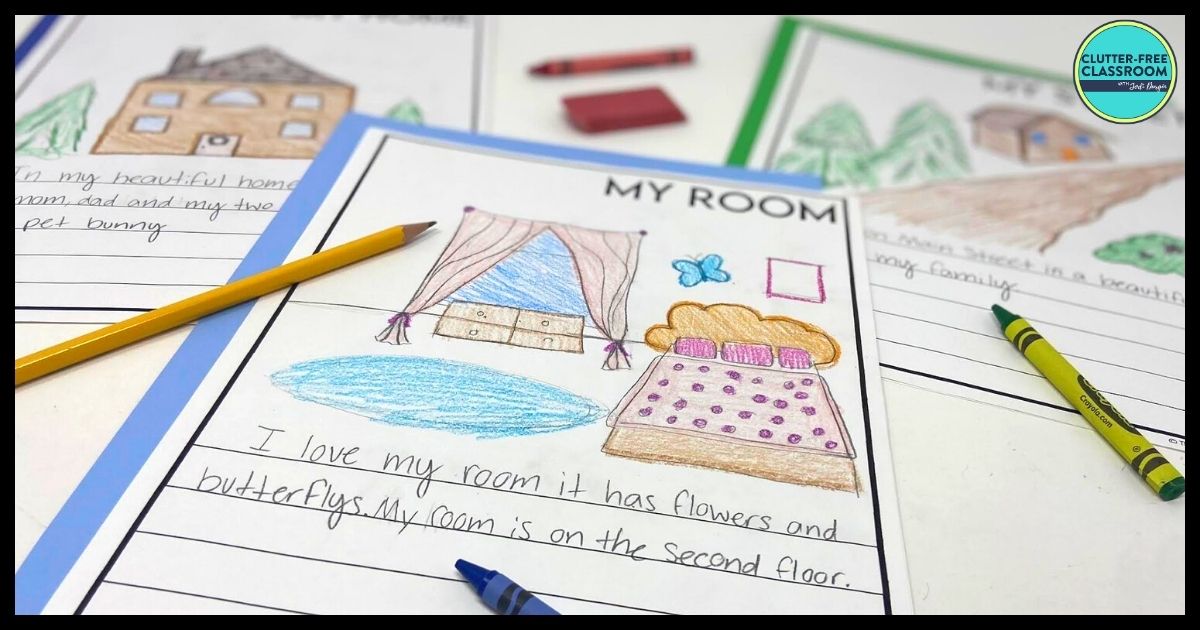 CLUTTER-FREE
CLASSROOM
In my beautiful home
mom, dad and my two
pet bunny
MY ROOM
I love my room it has flowers and
butterflys. My room is on the second floor.
on Main Street in a beautiful
my family
Crayola
Crayola.com